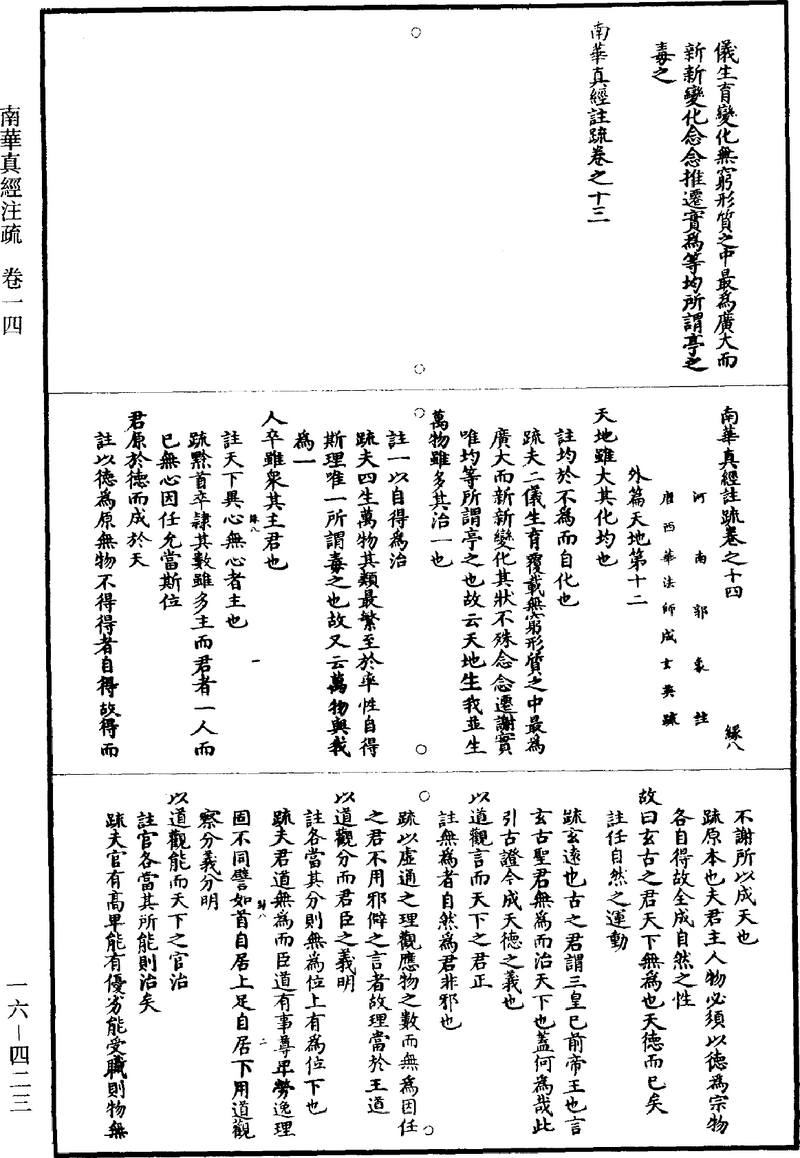 儀生育變化無窮形質之中最為廣大而
新新變化念念推遷實為等均所謂亭之
毒之
南華真經註疏卷之十三
南華真經註疏卷之十四
緣八
河南郭象註
唐西華法師成玄英疏
外篇天地第十二
天地雖大其化均也
註均於不為而自化也
疏夫二儀生育覆載無窮形質之中最為
廣大而新新變化其狀不殊念念遷謝實
唯均等所謂亭之也故云天地生我並生
萬物雖多其治一也
註一以自得為治
疏夫四生萬物其類最繁至於率性自得
斯理唯一所謂毒之也故又云萬物與我
為一
人卒雖衆其主君也
緣八
一
註天下異心無心者主也
疏黔首卒隸其數雖多主而君者一人而
已無心因任允當斯位
君原於德而成於天
註以德為原無物不得得者自得故得而
不謝所以成天也
疏原本也夫君主人物必須以德為宗物
各自得故全成自然之性
故曰玄古之君天下無為也天德而已矣
註任自然之運動
疏玄遠也古之君謂三皇已前帝王也言
玄古聖君無為而治天下也蓋何為哉此
引古證今成天德之義也
以道觀言而天下之君正
註無為者自然為君非邪也
疏以虛通之理觀應物之數而無為因任
之君不用邪僻之言者故理當於王道
以道觀分而君臣之義明
註各當其分則無為位上有為位下也
疏夫君道無為而臣道有事尊卑勞逸理
二
固不同譬如首自居上足自居下用道觀
察分義分明
以道觀能而天下之官治
註官各當其所能則治矣
疏夫官有高卑能有優劣能受職則物無
南華真經注疏　卷一四
一六—四二三